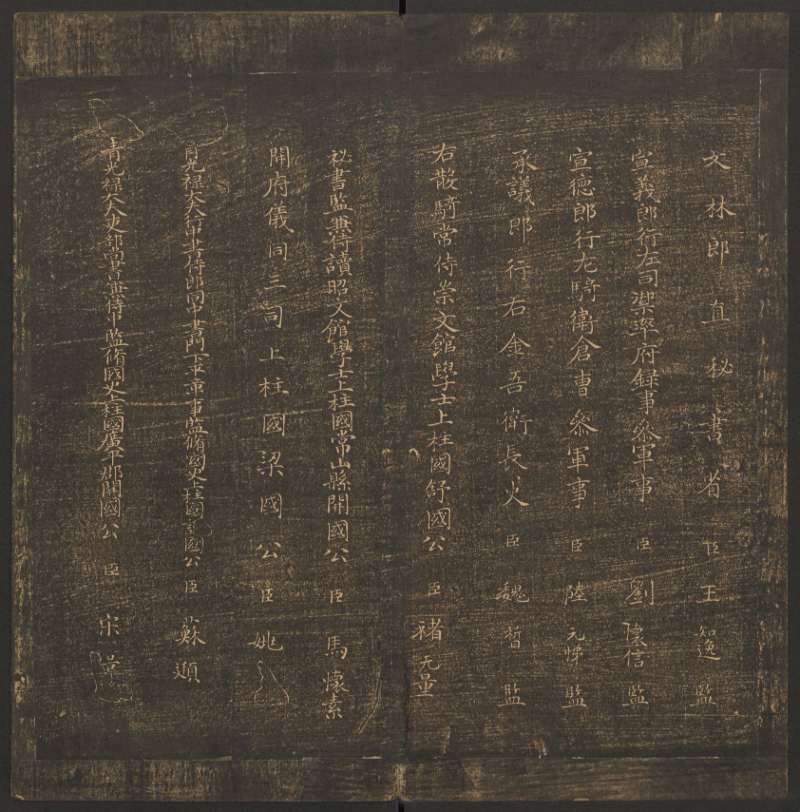 文林郎直秘書省臣王知逸監
宣義郎行左司禦率府録事參軍事臣劉陵信監
宣德郎行左驍衛倉曹參軍事臣陸元悌監
承議郎行右金吾衛長史臣魏哲監
右散騎常侍崇文館學士上柱國舒國公臣褚无量
祕書監兼侍讀昭文館學士上柱國常山縣開國公臣馬懷素
開府儀同三司上柱國梁國公臣姚
光祿大夫侍郎同中書門下平章事監脩國史上柱國國公臣蘇頲
光祿大夫吏部尚書兼侍中監脩國史上柱國廣平郡開國公臣宋